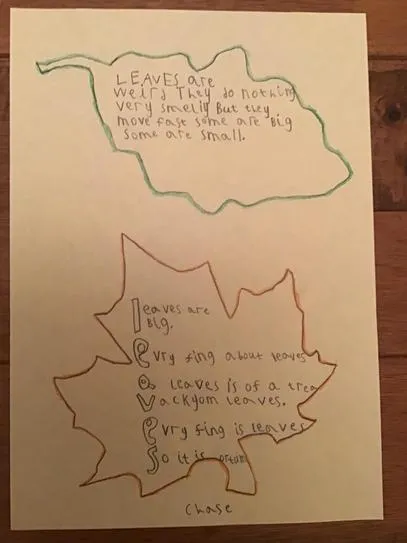 LEAVES are
weird They do nothing
very smelly But they
move fast some are Big
some are small.
leaves are
big.
evry fing about leaves
a leaves is of a trea
vackyom leaves.
evry fing is leaves
So it is ortum
Chase